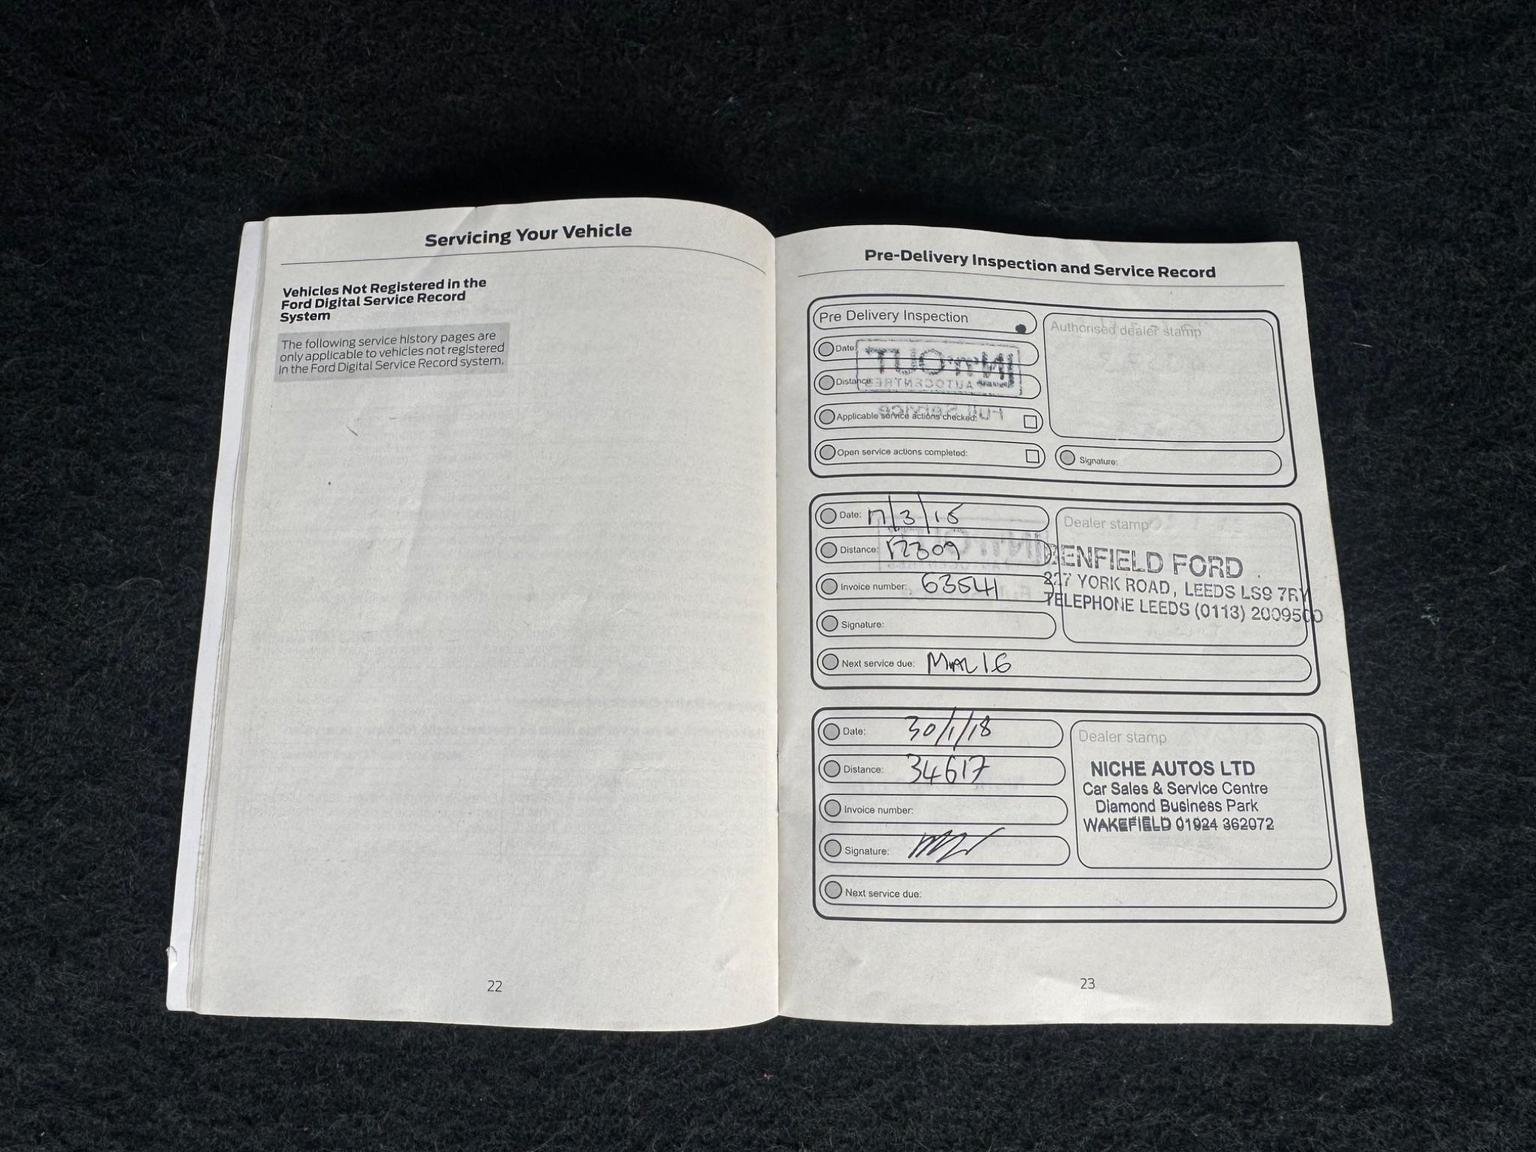 Servicing Your Vehicle
Vehicles Not Registered in the
Ford Digital Service Record
System
The following service history pages are
only applicable to vehicles not registered
in the Ford Digital Service Record system.
22
Pre-Delivery Inspection and Service Record
Pre Delivery Inspection
Date:
Distance:
Applicable service actions checked:
Open service actions completed:
Authorised dealer stamp
Signature:
IN'n'OUT
AUTOCENTRES
Full Service
Date: 17/3/15
Distance: 12309
Invoice number: 63541
Signature:
Next service due: Mar 16
Dealer stamp
BENFIELD FORD
YORK ROAD, LEEDS LS9 7RY
TELEPHONE LEEDS (0113) 2009500
Date: 30/1/18
Distance: 34617
Invoice number:
Signature:
Next service due:
Dealer stamp
NICHE AUTOS LTD
Car Sales & Service Centre
Diamond Business Park
WAKEFIELD 01924 362072
23